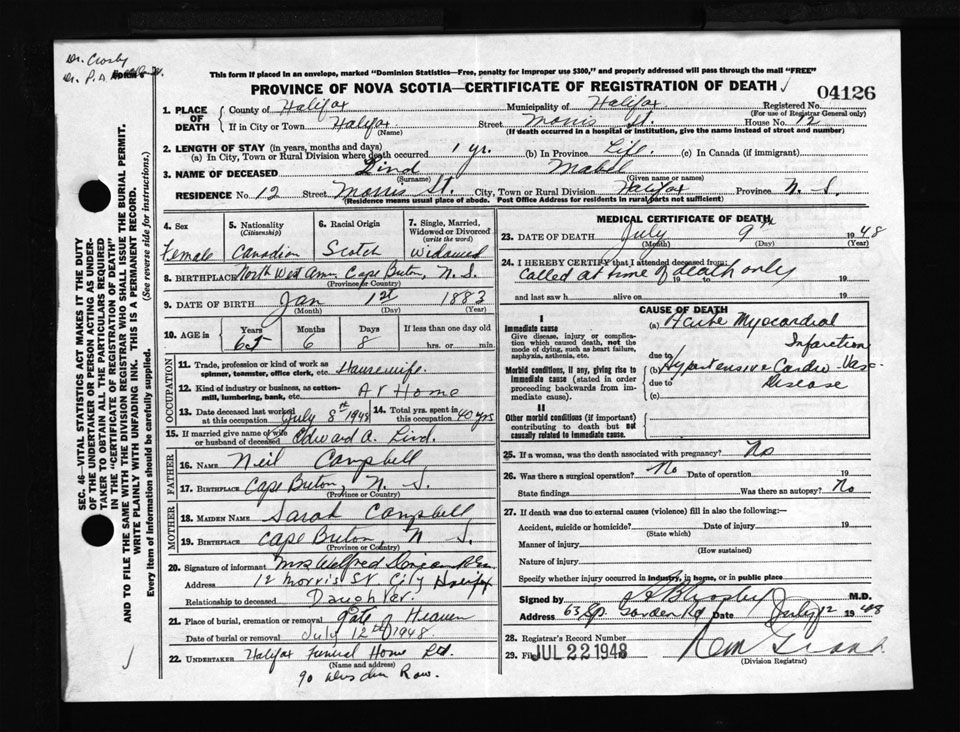 Dr. Crosby
Dr. P.S.
This form if placed in an envelope, marked "Dominion Statistics—Free, penalty for improper use $300," and properly addressed will pass through the mail "FREE"
PROVINCE OF NOVA SCOTIA—CERTIFICATE OF REGISTRATION OF DEATH
04126
1. PLACE OF DEATH
County of Halifax Municipality of Halifax Registered No.
(For use of Registrar General only)
If in City or Town Halifax Street Morris St. House No. 12
(Name) (If death occurred in a hospital or institution, give the name instead of street and number)
2. LENGTH OF STAY (in years, months and days)
(a) In City, Town or Rural Division where death occurred 1 yr. (b) In Province Life. (c) In Canada (if immigrant)
3. NAME OF DECEASED Lind Mabel
(Surname) (Given name or names)
RESIDENCE No. 12 Street Morris St. City, Town or Rural Division Halifax Province N. S.
(Residence means usual place of abode. Post Office Address for residents in rural parts not sufficient)
4. Sex Female
5. Nationality (Citizenship) Canadian
6. Racial Origin Scotch
7. Single, Married, Widowed or Divorced (write the word) Widowed
8. BIRTHPLACE North West Arm Cape Breton, N. S.
(Province or Country)
9. DATE OF BIRTH Jan 1st 1883
(Month) (Day) (Year)
10. AGE in Years Months Days If less than one day old
65 6 8 hrs. or min.
OCCUPATION
11. Trade, profession or kind of work as spinner, teamster, office clerk, etc. Housewife.
12. Kind of industry or business, as cotton-mill, lumbering, bank, etc. At Home
13. Date deceased last worked at this occupation July 8th 1948
14. Total yrs. spent in this occupation 40 yrs
15. If married give name of wife or husband of deceased Edward A. Lind.
FATHER
16. NAME Neil Campbell
17. BIRTHPLACE Cape Breton, N. S.
(Province or Country)
MOTHER
18. MAIDEN NAME Sarah Campbell
19. BIRTHPLACE Cape Breton, N. S.
(Province or Country)
20. Signature of informant Mrs Walfred
Address 12 Morris St. City Halifax
Relationship to deceased Daughter.
21. Place of burial, cremation or removal Gate of Heaven
Date of burial or removal July 12th 1948.
22. UNDERTAKER Halifax Funeral Home Ltd.
(Name and address)
90 Row.
MEDICAL CERTIFICATE OF DEATH
23. DATE OF DEATH July 9th 1948
(Month) (Day) (Year)
24. I HEREBY CERTIFY that I attended deceased from:
called at time of death only
19 to 19
and last saw h alive on 19
I
Immediate cause
Give disease, injury or complication which caused death, not the mode of dying, such as heart failure, asphyxia, asthenia, etc.
Morbid conditions, if any, giving rise to immediate cause (stated in order proceeding backwards from immediate cause).
II
Other morbid conditions (if important) contributing to death but not causally related to immediate cause.
CAUSE OF DEATH
(a) Acute Myocardial Infarction
due to
(b) Hypertensive Cardio-Vasc. Disease
due to
(c)
25. If a woman, was the death associated with pregnancy? No
26. Was there a surgical operation? No Date of operation 19
State findings Was there an autopsy? No
27. If death was due to external causes (violence) fill in also the following:—
Accident, suicide or homicide? Date of injury 19
(State which)
Manner of injury
(How sustained)
Nature of injury
Specify whether injury occurred in industry, in home, or in public place
Signed by Crosby M.D.
Address 63 Sp. Garden Rd Date July 12 1948
28. Registrar's Record Number
29. Filed JUL 22 1948
(Division Registrar)
SEC. 46—VITAL STATISTICS ACT MAKES IT THE DUTY
OF THE UNDERTAKER OR PERSON ACTING AS UNDER-
TAKER TO OBTAIN ALL THE PARTICULARS REQUIRED
IN THE "CERTIFICATE OF REGISTRATION OF DEATH"
AND TO FILE THE SAME WITH THE DIVISION REGISTRAR WHO SHALL ISSUE THE BURIAL PERMIT.
WRITE PLAINLY WITH UNFADING INK. THIS IS A PERMANENT RECORD.
Every item of information should be carefully supplied. (See reverse side for instructions.)